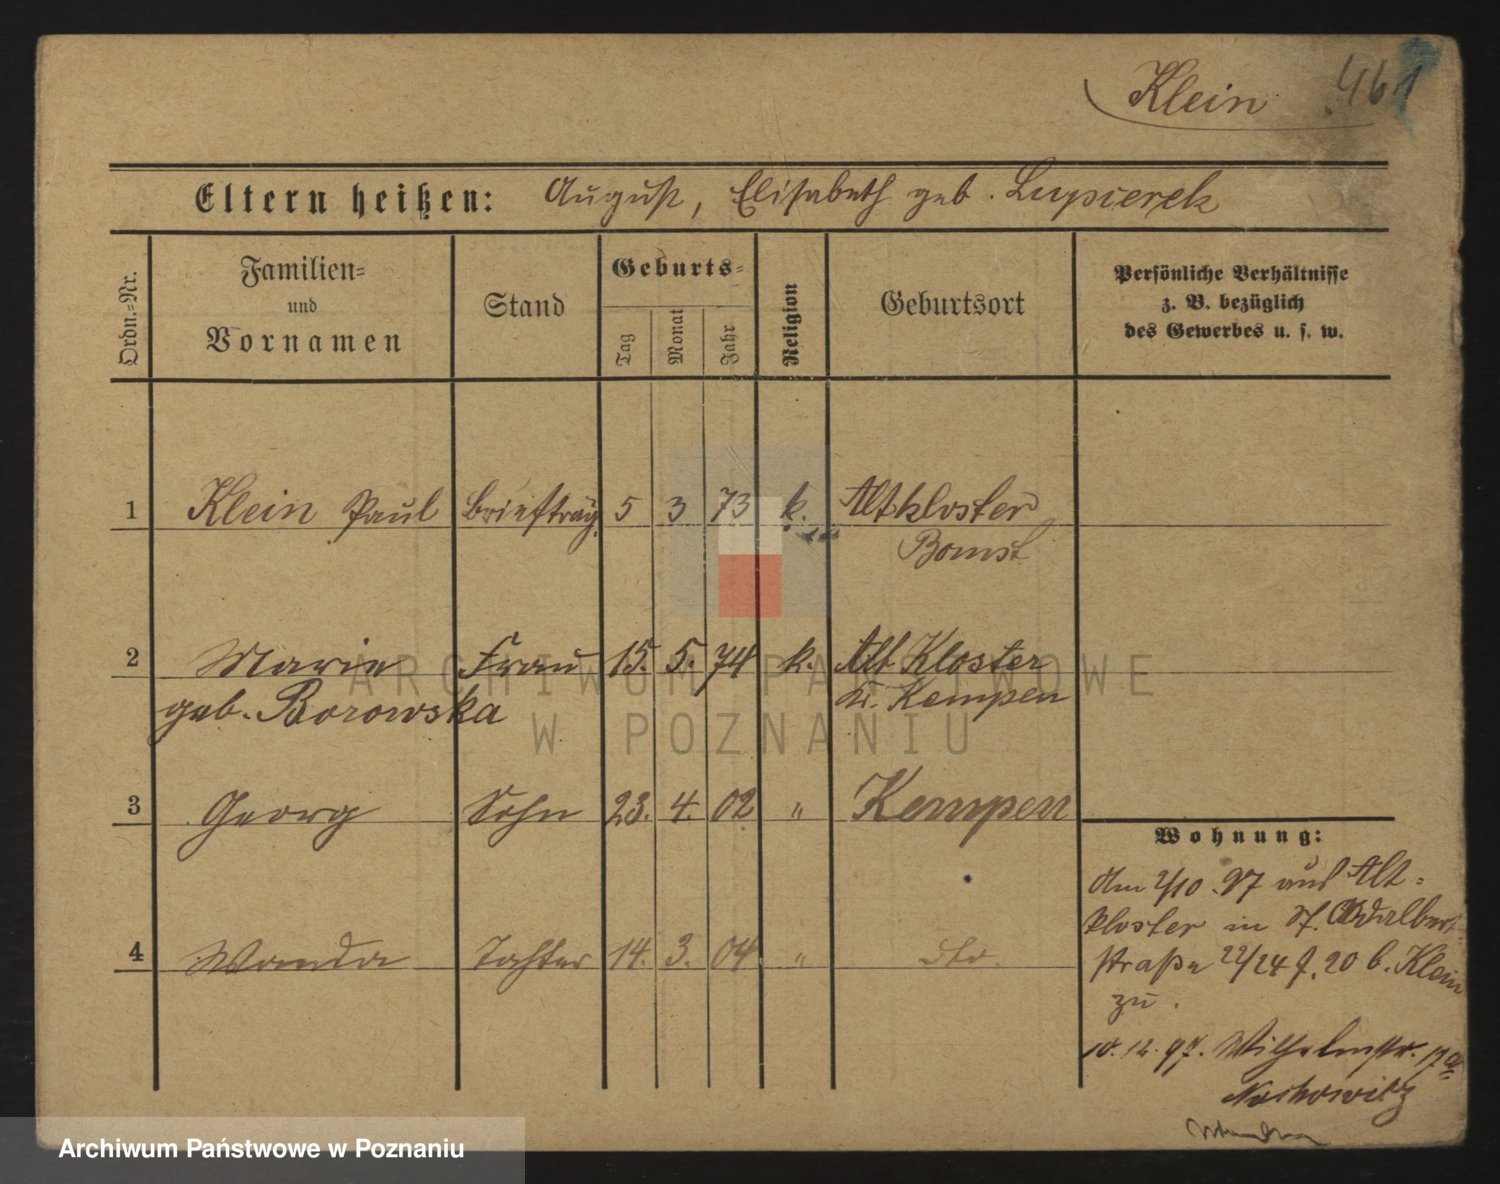 Klein 461
Eltern heißen: August, Elisabeth geb. Lupierek
Ordn.=Nr.
Familien=
und
Vornamen
Stand
Geburts=
Tag
Monat
Jahr
Religion
Geburtsort
Persönliche Verhältnisse
z. B. bezüglich
des Gewerbes u. s. w.
1 Klein Paul Briefträg. 5 3 73 k. Altkloster
Bomst
2 Marie Frau 15. 5. 74 k. Alt Kloster
geb. Borowska Kr. Kempen
3 Georg Sohn 23. 4. 02 " Kempen
4 Wanda Tochter 14. 3. 04 " dto.
Wohnung:
Am 2/10. 97 aus Alt=
kloster in St. Adalbert=
straße 22/24 f. 20 b. Klein
zu.
10. 12. 97. Wilhelmstr. 17
ARCHIWUM PAŃSTWOWE
W POZNANIU
Archiwum Państwowe w Poznaniu